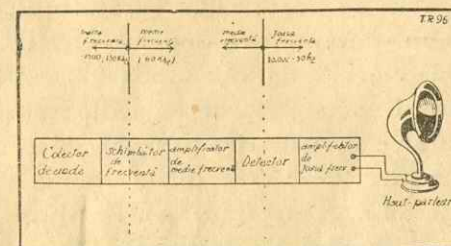 T.R 96
înaltă
frecvență
medie
frecvență
medie
frecvență
joasă
frecvență
Colector
de unde
schimbător
de
frecvență
amplificator
de
medie frecvență
Detector
amplificator
de
joasă frecv
Haut-parleur